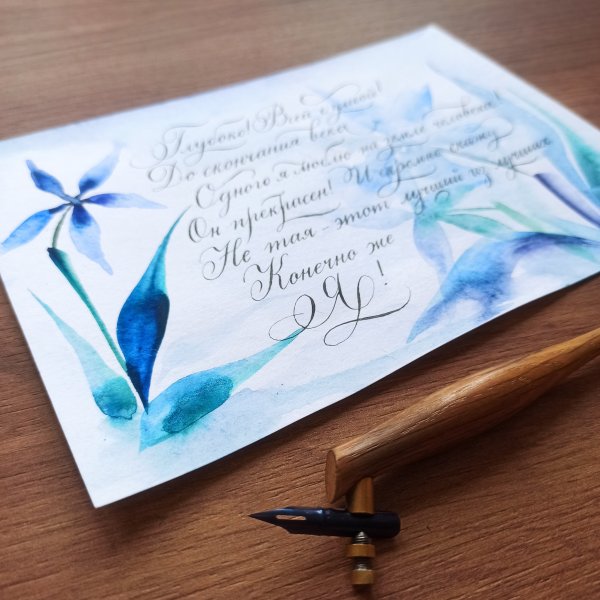 Глубоко! Всей душой!
До скончания века
Одного я люблю на земле человека!
Он прекрасен! И скромно скажу,
Не тая - этот лучший из лучших
Конечно же
Я!